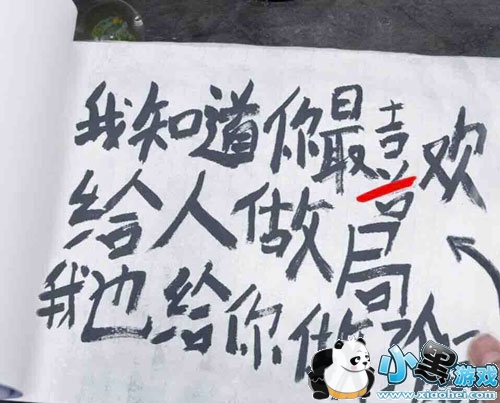 我知道你最喜欢
给人做局
我也给你做
小黑游戏
www.xiaohei.com